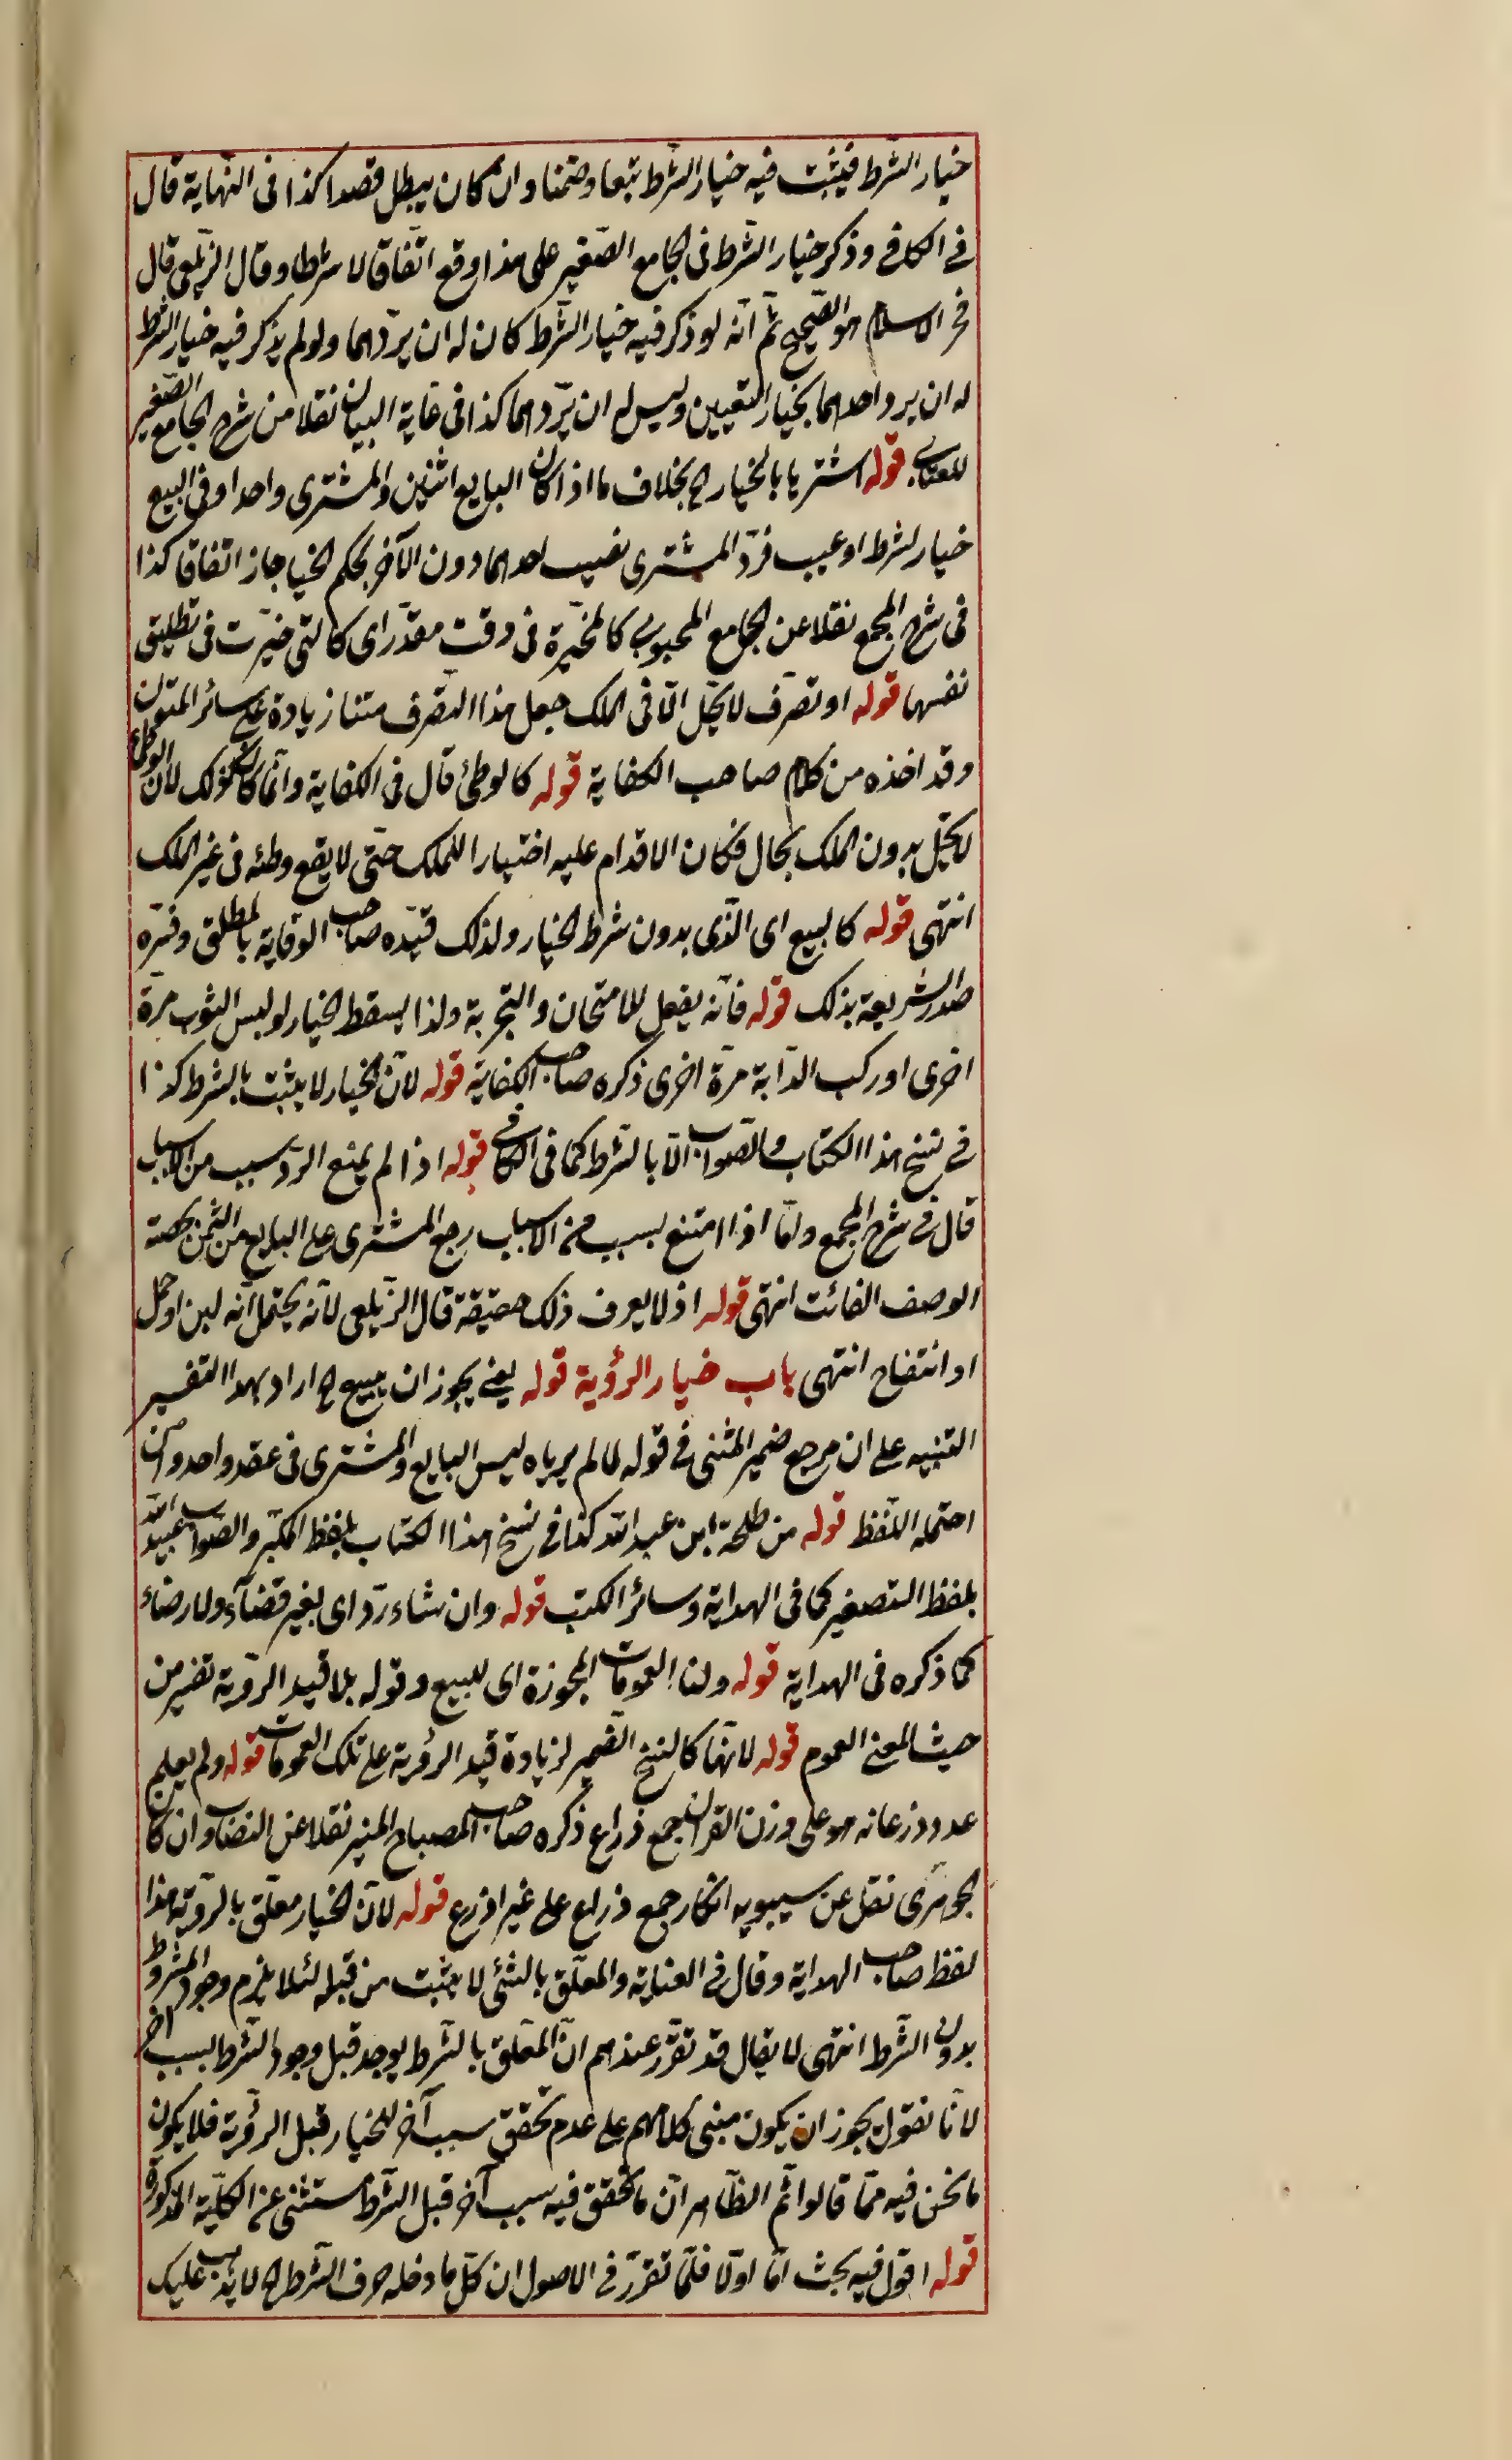 خيار الشّرط فيثبت فيه خيار الشرط تبعا وضمنا وان كان يبطل قصدا كذا فى النّهاية قال
فى الكافى وذكر خيار الشّرط فى الجامع الصّغير على هذا وقع اتّفاقا لا شرطا وقال الزّيلعى قال
فخر الاسلام هو الصّحيح ثمّ انّه لو ذكر فيه خيار الشّرط كان له ان يردّهما ولو لم يذكر فيه خيار الشرط
له ان يرد احدهما بخيار التعيين وليس له ان يردّهما كذا فى غاية البيان نقلا من شرح الجامع الصّغير
للعتابى قوله اشتريا بالخيار الخ بخلاف ما اذا كان البايع اثنين والمشترى واحدا وفى البيع
خيار شرط او عيب فردّ المشترى نصيب احدهما دون الآخر بحكم الخيار جاز اتفاقا كذا
فى شرح المجمع نقلا عن الجامع المحبوبى كالمخيّرة فى وقت مقدّر اى كالتى خيّرت فى تطليق
نفسها قوله او تصرّف لا يحلّ الّا فى الملك جعل هذا التصرف متنا زيادة على سائر المتون
وقد اخذه من كلام صاحب الكفاية قوله كالوطئ قال فى الكفاية وانّما كان كذلك لان الوطئ
لا يحلّ بدون الملك بحال فكان الاقدام عليه اختيارا للملك حتّى لا يقع وطئه فى غير الملك
انتهى قوله كالبيع اى الّذى بدون شرط الخيار ولذلك قيّده صاحب الوقاية بالمطلق وفسّره
صدر الشريعة بذلك قوله فانّه يفعل للامتحان والتجربة ولذا يسقط الخيار لو لبس الثوب مرّة
اخرى او ركب الدّابة مرّة اخرى ذكره صاحب الكفاية قوله لانّ الخيار لا يثبت بالشرط كذا
فى نسخ هذا الكتاب والصّواب الّا بالشّرط كما فى الكافى قوله اذا لم يمنع الردّ سبب من الاسباب
قال فى شرح المجمع وامّا اذا امتنع بسبب من الاسباب رجع المشترى على البايع من الثمن بحصة
الوصف الفائت انتهى قوله اذ لا يعرف ذلك حقيقة قال الزّيلعى لانّه يحتمل انّه لبن او حمل
او انتفاخ انتهى باب خيار الرؤية قوله يعنى يجوز ان يبيع الخ اراد بهذا التفسير
التنبيه على ان مرجع ضمير المثنى فى قوله لما لم يرياه ليس البايع والمشترى فى عقد واحد وان
احتمله اللّفظ قوله من طلحة ابن عبد الله كذا فى نسخ هذا الكتاب بلفظ المكبّر والصّواب عبيد الله
بلفظ التصغير كما فى الهداية وسائر الكتب قوله وان شاء ردّ اى بغير قضآء ولا رضاء
كما ذكره فى الهداية قوله ولنا العمومات المجوزة اى للبيع وقوله بلا قيد الرّوية تفسير من
حيث المعنى العموم قوله لانّها كالنسخ الضّمير لزيادة قيد الرؤية على تلك العمومات قوله ولم يعلم
عدد ذرعانه هو على وزن القرآن جمع ذراع ذكره صاحب المصباح المنير نقلا عن النضاب وان كا
الجوهرى نقل عن سيبويه انكار جمع ذراع على غير اذرع قوله لانّ الخيار معلّق بالرّوية هذا
لفظ صاحب الهداية وقال فى العناية والمعلّق بالشئ لا يثبت من قبله لئلا يلزم وجود المشروط
بدون الشّرط انتهى لا يقال قد تقرّر عندهم انّ المعلّق بالشّرط يوجد قبل وجود الشّرط بسبب اخر
لانّا نقول يجوز ان يكون مبنى كلامهم على عدم تحقق سبب آخر للخيار قبل الرؤية فلا يكون
ما نحن فيه ممّا قالوا ثمّ الظّاهر انّ ما تحقق فيه سبب آخر قبل الشّرط مستثنى عن الكلّية المذكورة
قوله اقول فيه بحث امّا اوّلا فلمّا تقرّر فى الاصول ان كلّ ما دخله حرف الشّرط الخ لا يذهب عليك